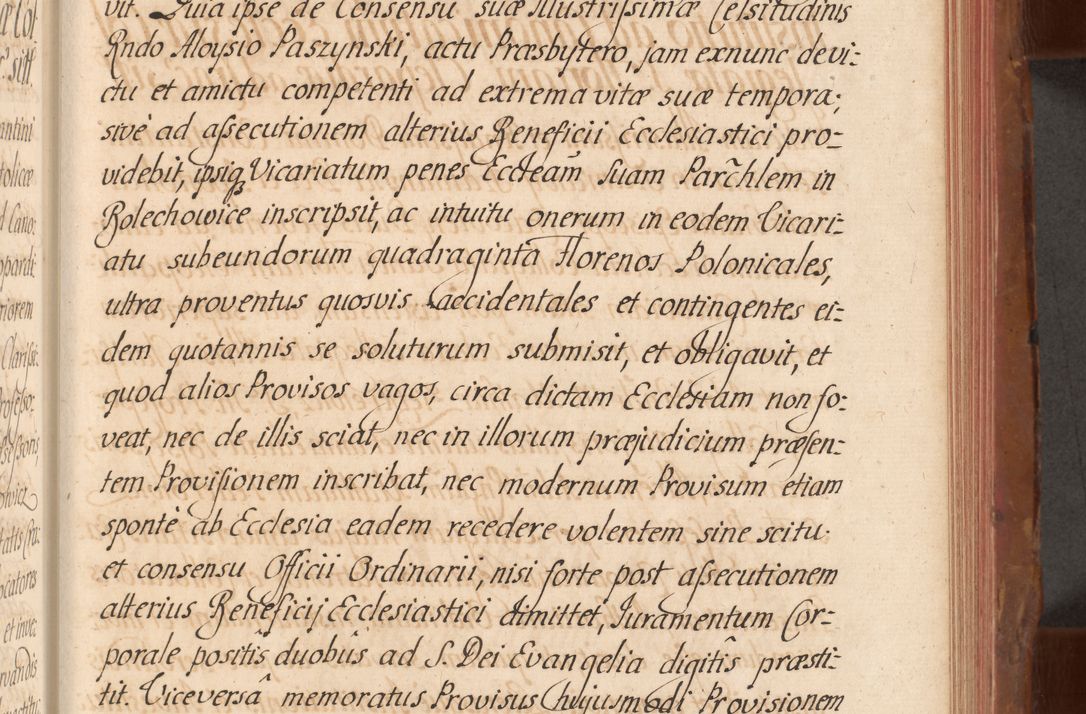 vit. Quia ipse de Consensu suæ Illustrissimæ Celsitudinis
Rndo Aloysio Paszynski, actu Præsbytero, jam exnunc de vi=
ctu et amictu competenti ad extrema vitæ suæ tempora;
sivè ad assecutionem alterius Beneficii Ecclesiastici pro=
videbit, ipsiq Vicariatum penes Eccleam̃ Suam Parc̃hlem in
Bolechowice inscripsit, ac intuitu onerum in eodem Vicari=
atu subeundorum quadraginta Florenos Polonicales,
ultra proventus quosvis accidentales et contingentes ei=
dem quotannis se soluturum submisit, et obligavit, et
quod alios Provisos vagos, circa dictam Ecclesiam non fo=
veat, nec de illis sciat, nec in illorum præjudicium præsen=
tem Provisionem inscribat, nec modernum Provisum etiam
spontè ab Ecclesia eadem recedere volentem sine scitu
et consensu Officii Ordinarii, nisi forte post assecutionem
alterius Beneficij Ecclesiastici dimittet, Iuramentum Cor=
porale positîs duobûs ad S. Dei Evangelia digitîs præsti=
tit. Viceversâ memoratus Provisus hujusmodi Provisionem